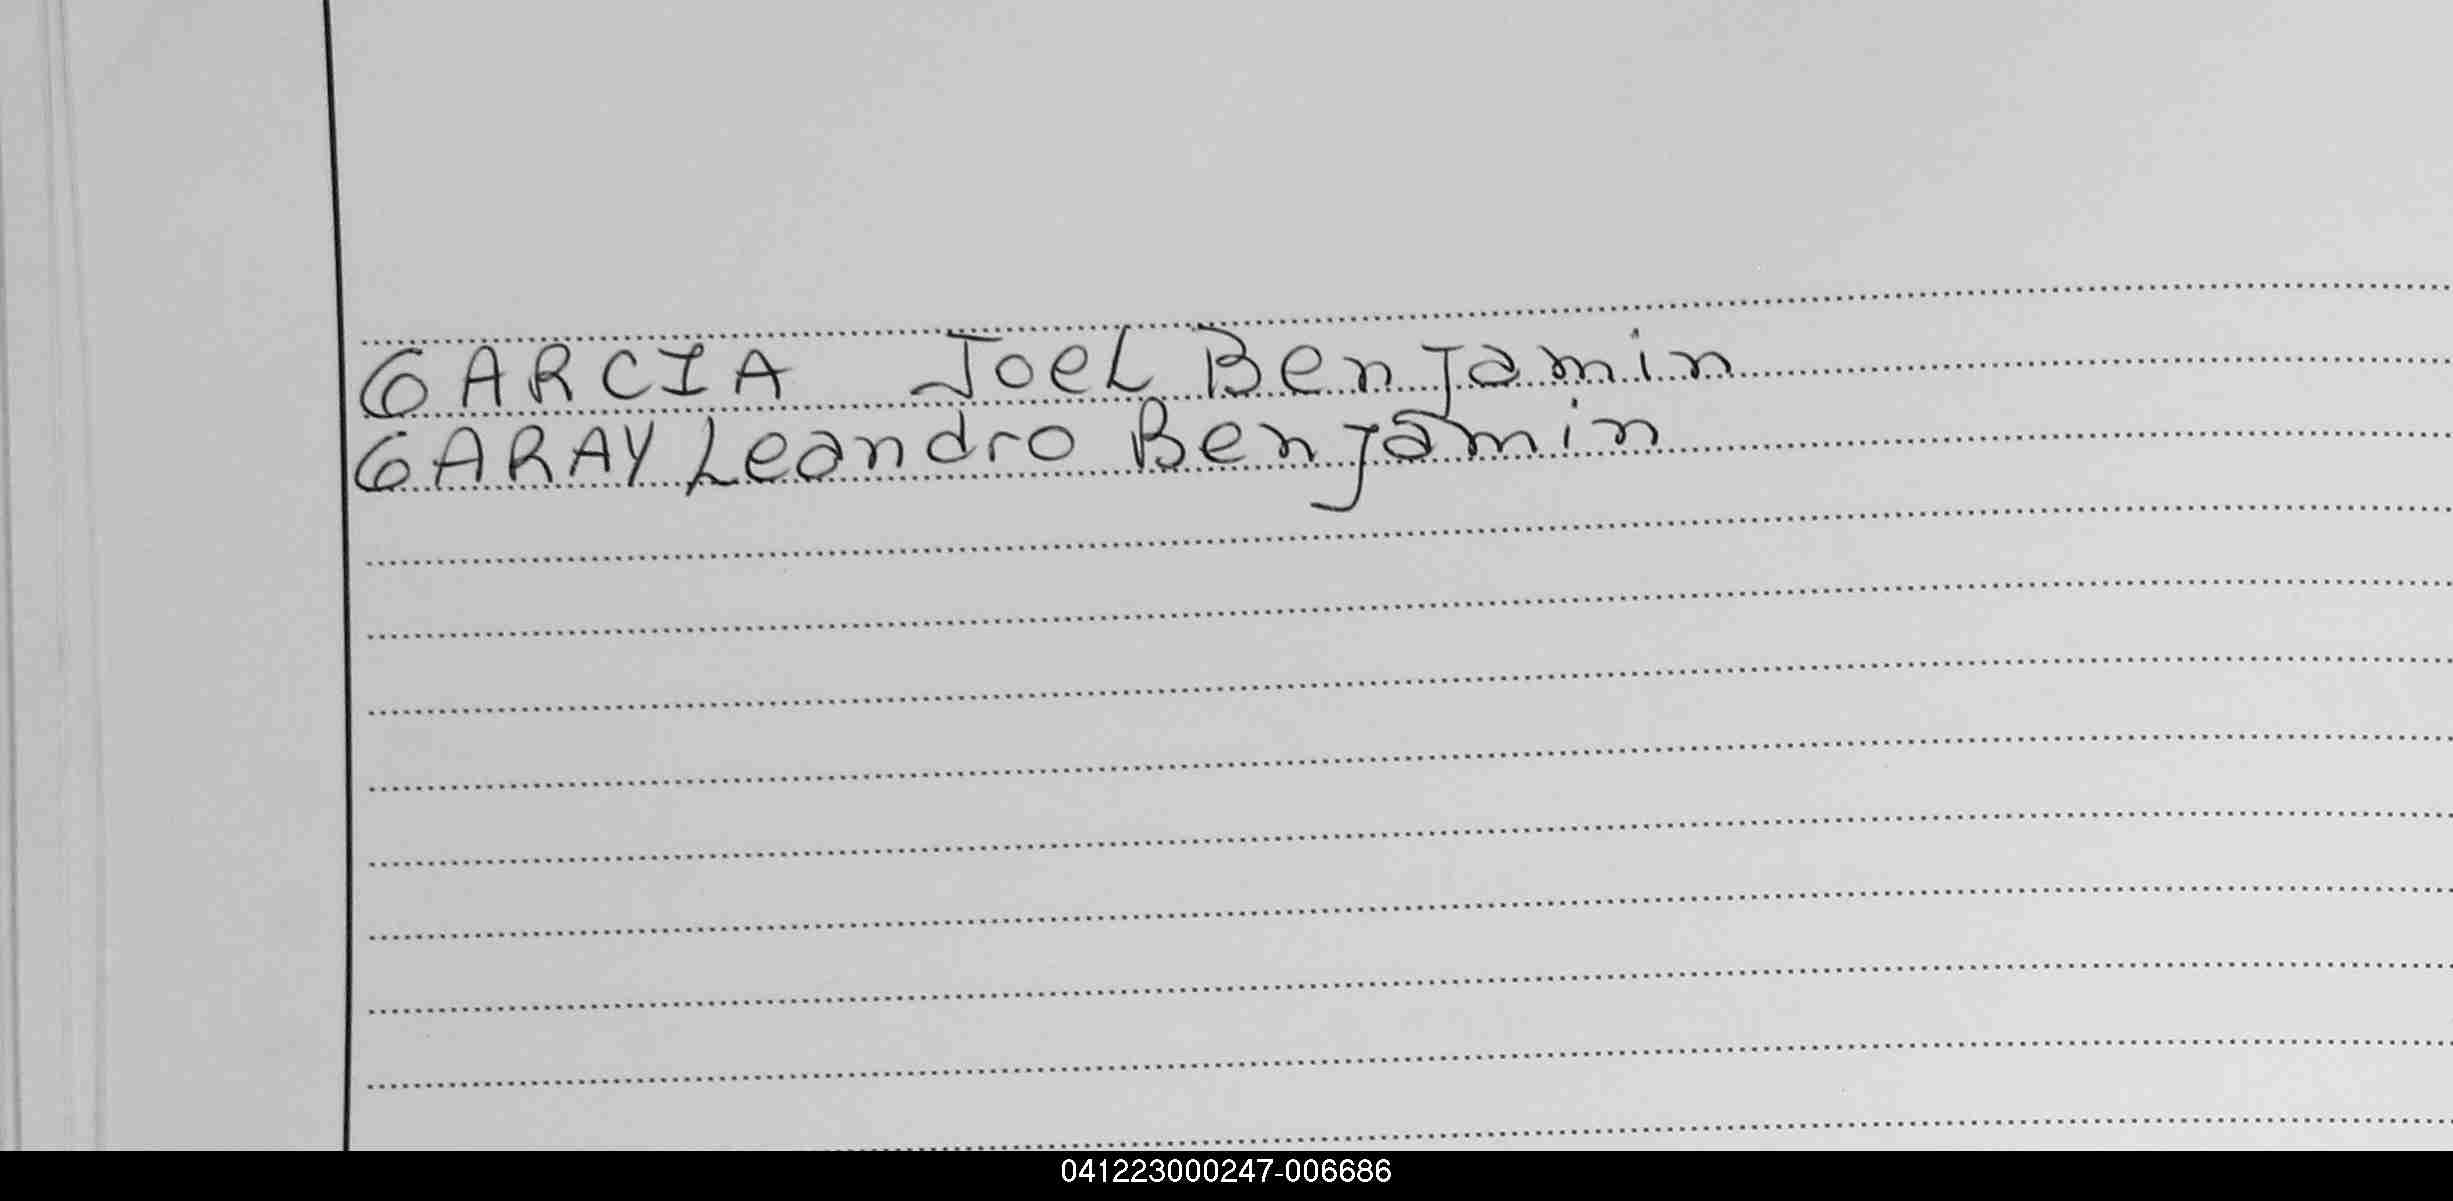 GARCIA Joel Benjamin
GARAY Leandro Benjamin
041223000247-006686